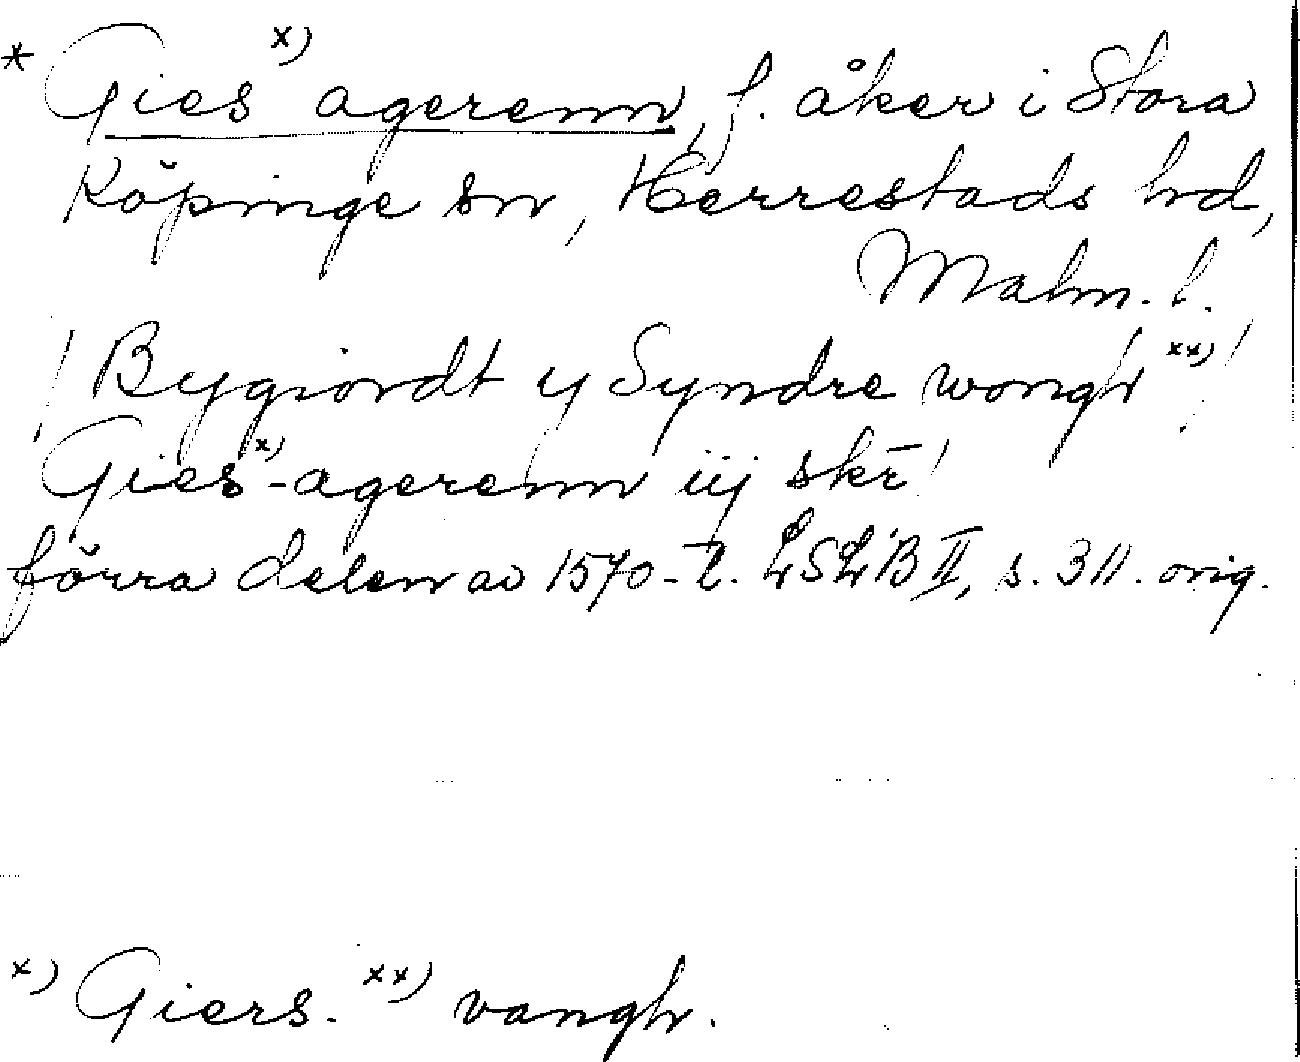 * Gies x) agerenn, f. åker i Stora
Köpinge sn, Herrestads hd,
Malm. l.
/ Bygiordt y Syndre wongh xx) /
Gies x)-agerenn iij skr̄ /
förra delen av 1570-t. LSLB II, s. 311. orig.
x) Giers. xx) vangh.